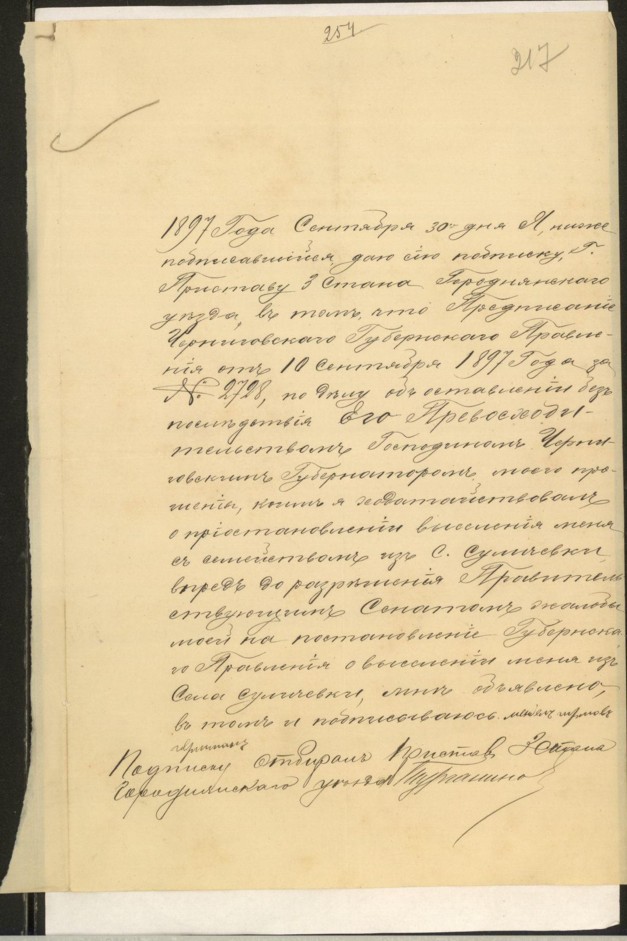 254
217
1897 Года Сентября 30 дня Я, ниже
подписавшійся, даю сію подписку, Г.
Приставу 3 Стана Городнянскаго
уѣзда, въ томъ, что Предписаніе
Черниговскаго Губернскаго Правле-
нія отъ 10 Сентября 1897 Года за
№ 2728, по дѣлу объ оставленіи безъ
послѣдствія Его Превосходи-
тельствомъ Господиномъ Черни-
говскимъ Губернаторомъ, моего про-
шенія, коимъ я ходатайствовалъ
о пріостановленіи выселенія меня
съ семействомъ изъ С. Суличевки,
впредь до разрѣшенія Правитель
ствующимъ Сенатомъ жалобы
моей на постановленіе Губернска
го Правленія о выселеніи меня изъ
Села Суличевки, мнѣ объявлено,
въ томъ и подписываюсь.
Подписку отбиралъ Приставъ 3 Стана
Городнянскаго уѣзда